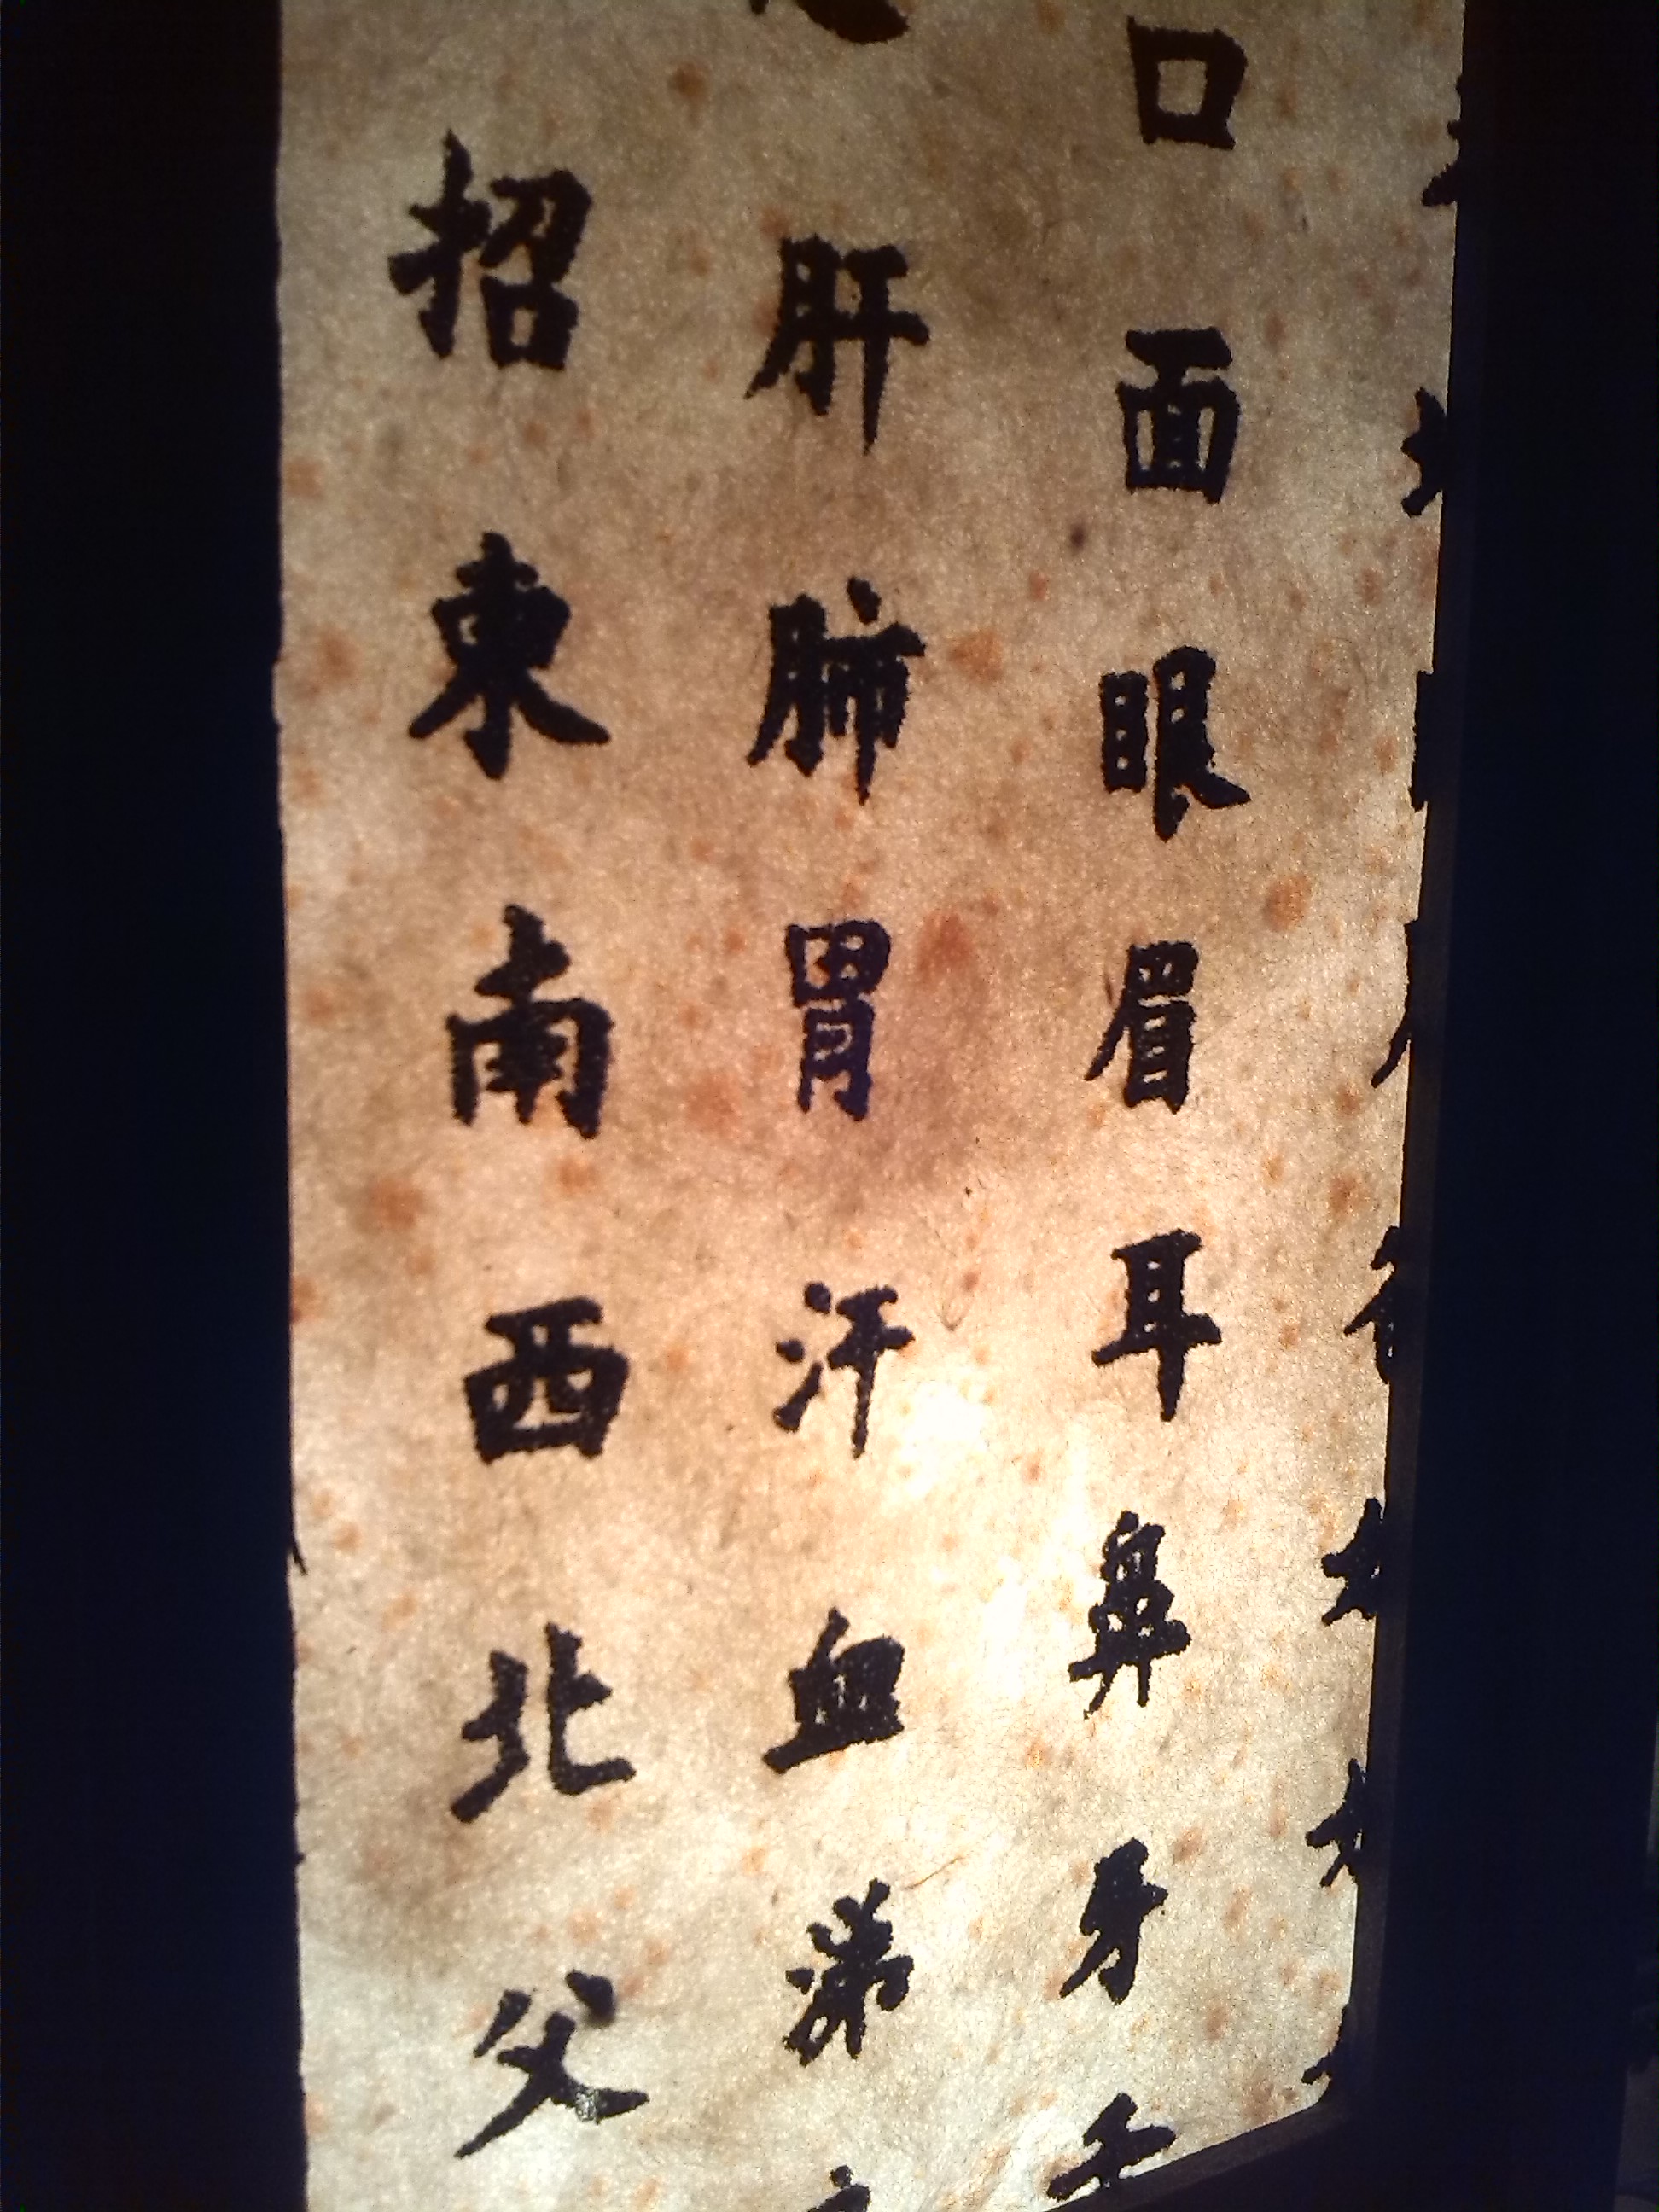 口面眼眉耳鼻牙
肝肺胃汗血涕
招東南西北父